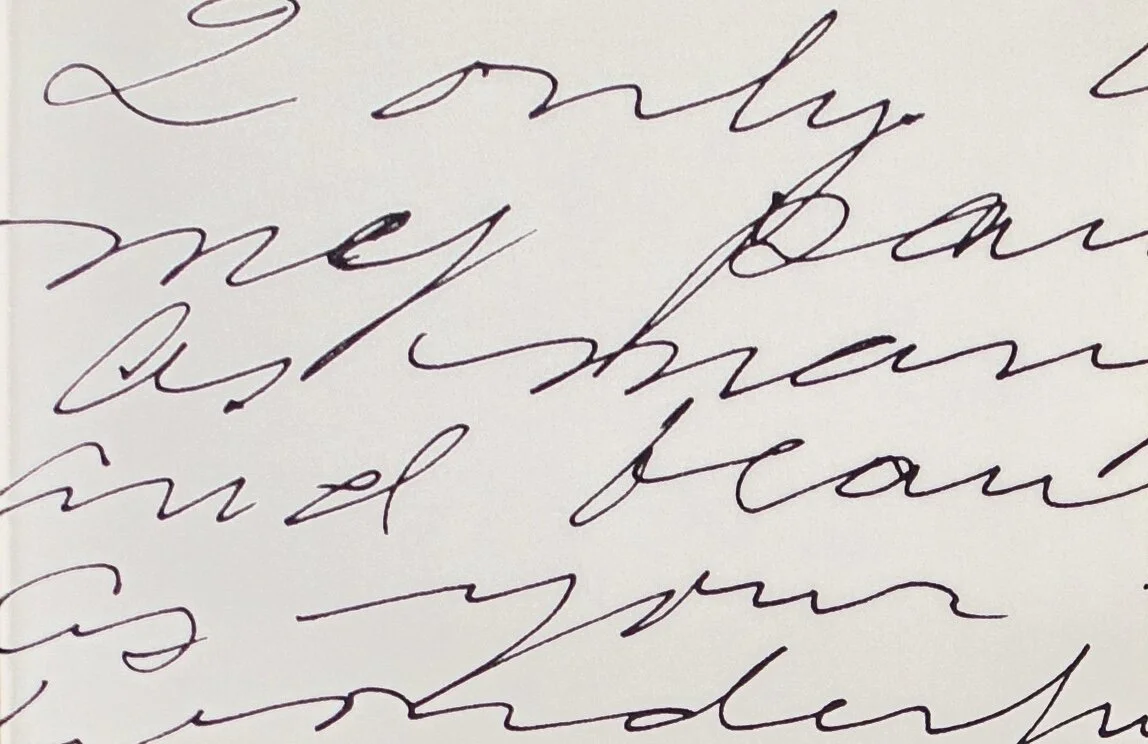 I only
my pai
as man
and beau
as your
wonderfu